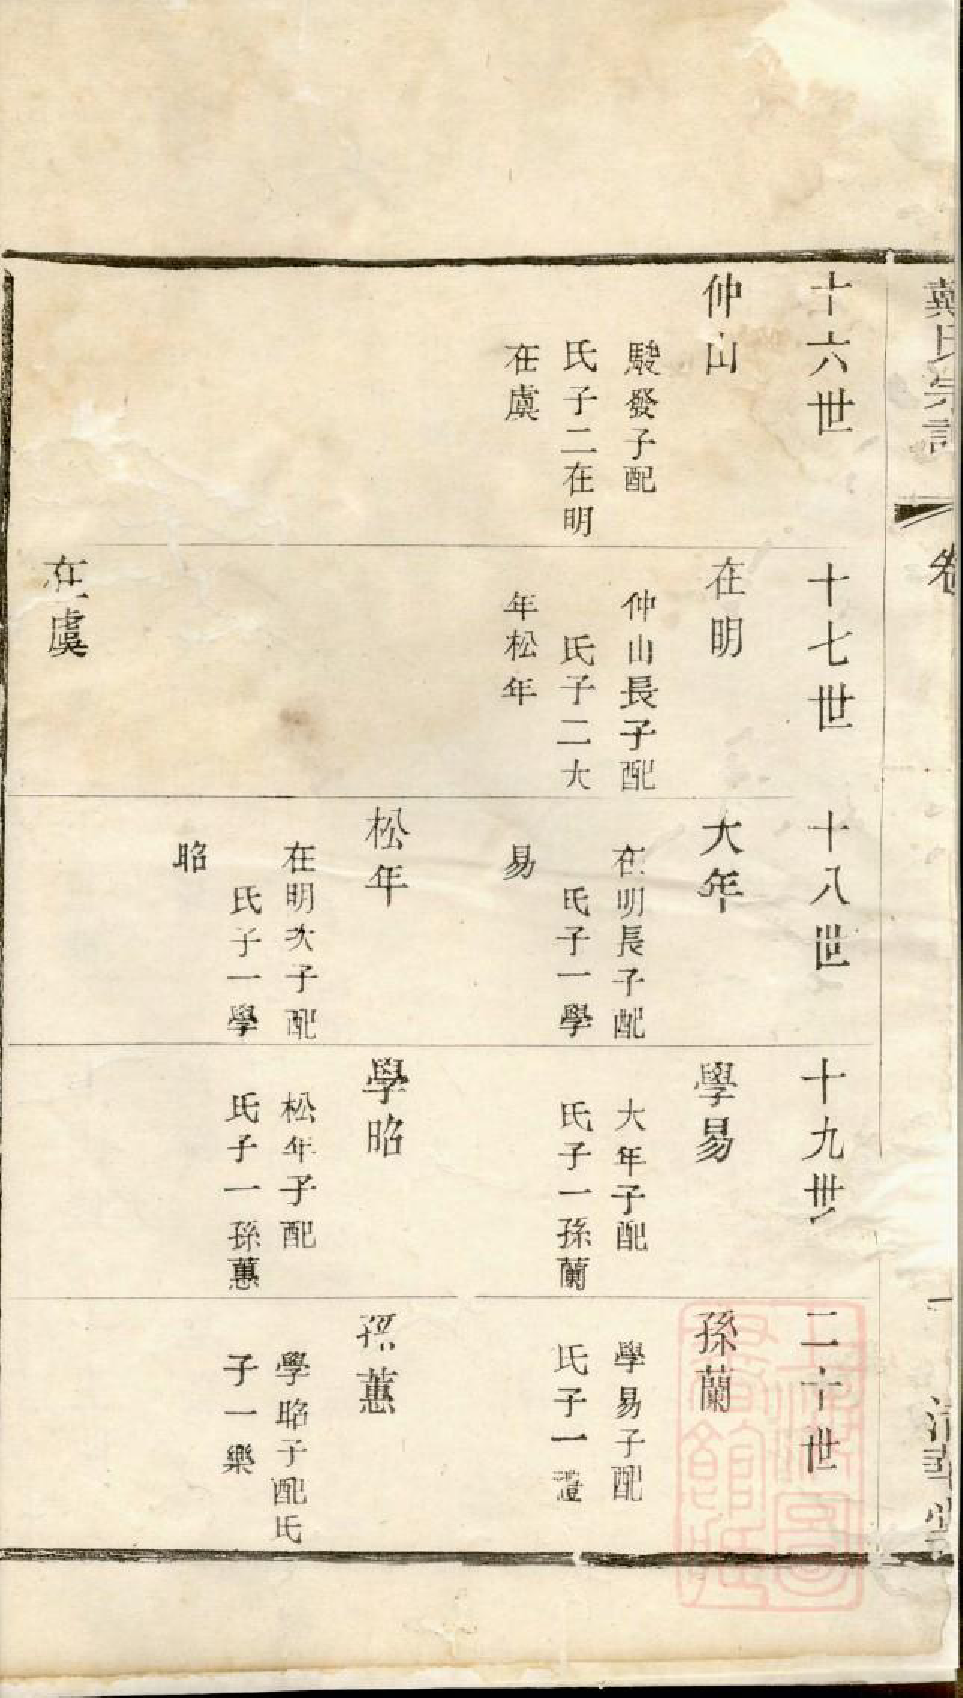 戴氏宗譜
卷
一
清華堂
十六世
仲山
駿發子配
氏子二在明
在虞
十七世
在明
仲山長子配
氏子二大
年松年
在虞
十八世
大年
在明長子配
氏子一學
易
松年
在明次子配
氏子一學
昭
十九世
學易
大年子配
氏子一孫蘭
學昭
松年子配
氏子一孫蕙
二十世
孫蘭
學易子配
氏子一
孫蕙
學昭子配氏
子一樂